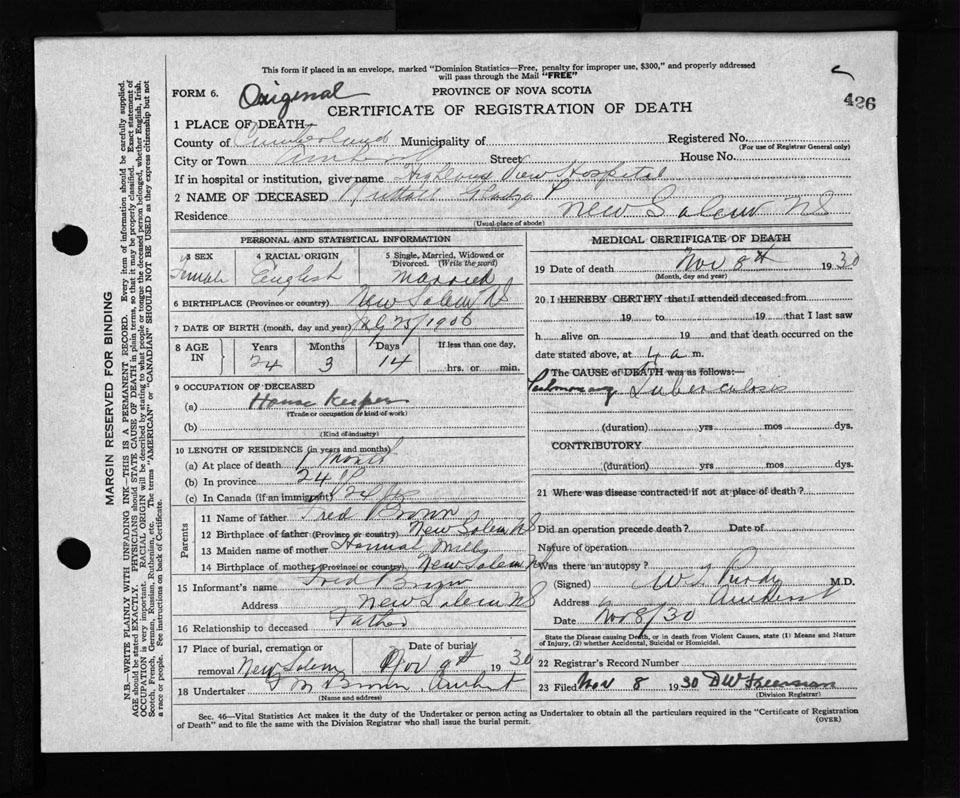 This form if placed in an envelope, marked "Dominion Statistics—Free, penalty for improper use, $300," and properly addressed
will pass through the Mail "FREE"
FORM 6. Original PROVINCE OF NOVA SCOTIA
426
CERTIFICATE OF REGISTRATION OF DEATH
1 PLACE OF DEATH
County of Cumberland Municipality of Registered No.
(For use of Registrar General only)
City or Town Amherst Street House No.
If in hospital or institution, give name View Hospital
2 NAME OF DECEASED
Residence New Salem NS
(Usual place of abode)
PERSONAL AND STATISTICAL INFORMATION
3 SEX 4 RACIAL ORIGIN 5 Single, Married, Widowed or Divorced. (Write the word)
Female English Married
6 BIRTHPLACE (Province or country) New Salem NS
7 DATE OF BIRTH (month, day and year) 25/1906
8 AGE IN Years Months Days If less than one day,
24 3 14 hrs. or min.
9 OCCUPATION OF DECEASED
(a) House Keeper
(Trade or occupation or kind of work)
(b)
(Kind of industry)
10 LENGTH OF RESIDENCE (in years and months)
(a) At place of death 1 Month
(b) In province 24
(c) In Canada (if an immigrant) 24
Parents
11 Name of father Fred Brown
12 Birthplace of father (Province or country) New Salem NS
13 Maiden name of mother Hannah Mills
14 Birthplace of mother (Province or country) New Salem NS
15 Informant's name Fred Brown
Address New Salem NS
16 Relationship to deceased Father
17 Place of burial, cremation or Date of burial
removal New Salem Nov 9th 1930
18 Undertaker Brown Amherst
(Name and address)
MEDICAL CERTIFICATE OF DEATH
19 Date of death Nov 8th 1930
(Month, day and year)
20 I HEREBY CERTIFY that I attended deceased from
19 to 19 that I last saw
h alive on 19 and that death occurred on the
date stated above, at 4 a m.
The CAUSE of DEATH was as follows:
Pulmonary Tuberculosis
(duration) yrs mos dys.
CONTRIBUTORY
(duration) yrs mos dys.
21 Where was disease contracted if not at place of death?
Did an operation precede death? Date of
Nature of operation
Was there an autopsy?
(Signed) Purdy M.D.
Address Amherst
Date Nov 8/30
State the Disease causing Death, or in death from Violent Causes, state (1) Means and Nature
of Injury, (2) whether Accidental, Suicidal or Homicidal.
22 Registrar's Record Number
23 Filed Nov 8 1930 DW Freeman
(Division Registrar)
Sec. 46—Vital Statistics Act makes it the duty of the Undertaker or person acting as Undertaker to obtain all the particulars required in the "Certificate of Registration
of Death" and to file the same with the Division Registrar who shall issue the burial permit. (OVER)
MARGIN RESERVED FOR BINDING
N.B.—WRITE PLAINLY WITH UNFADING INK—THIS IS A PERMANENT RECORD. Every item of information should be carefully supplied.
AGE should be stated EXACTLY. PHYSICIANS should STATE CAUSE OF DEATH in plain terms, so that it may be properly classified. Exact statement of
OCCUPATION is very important. RACIAL ORIGIN will be described by stating to what people or tongue the deceased person belonged, whether English, Irish,
Scotch, French, German, Russian, Ruthenian, etc. The terms "AMERICAN" or "CANADIAN" SHOULD NOT BE USED as they express citizenship but not
a race or people. See instructions on back of Certificate.